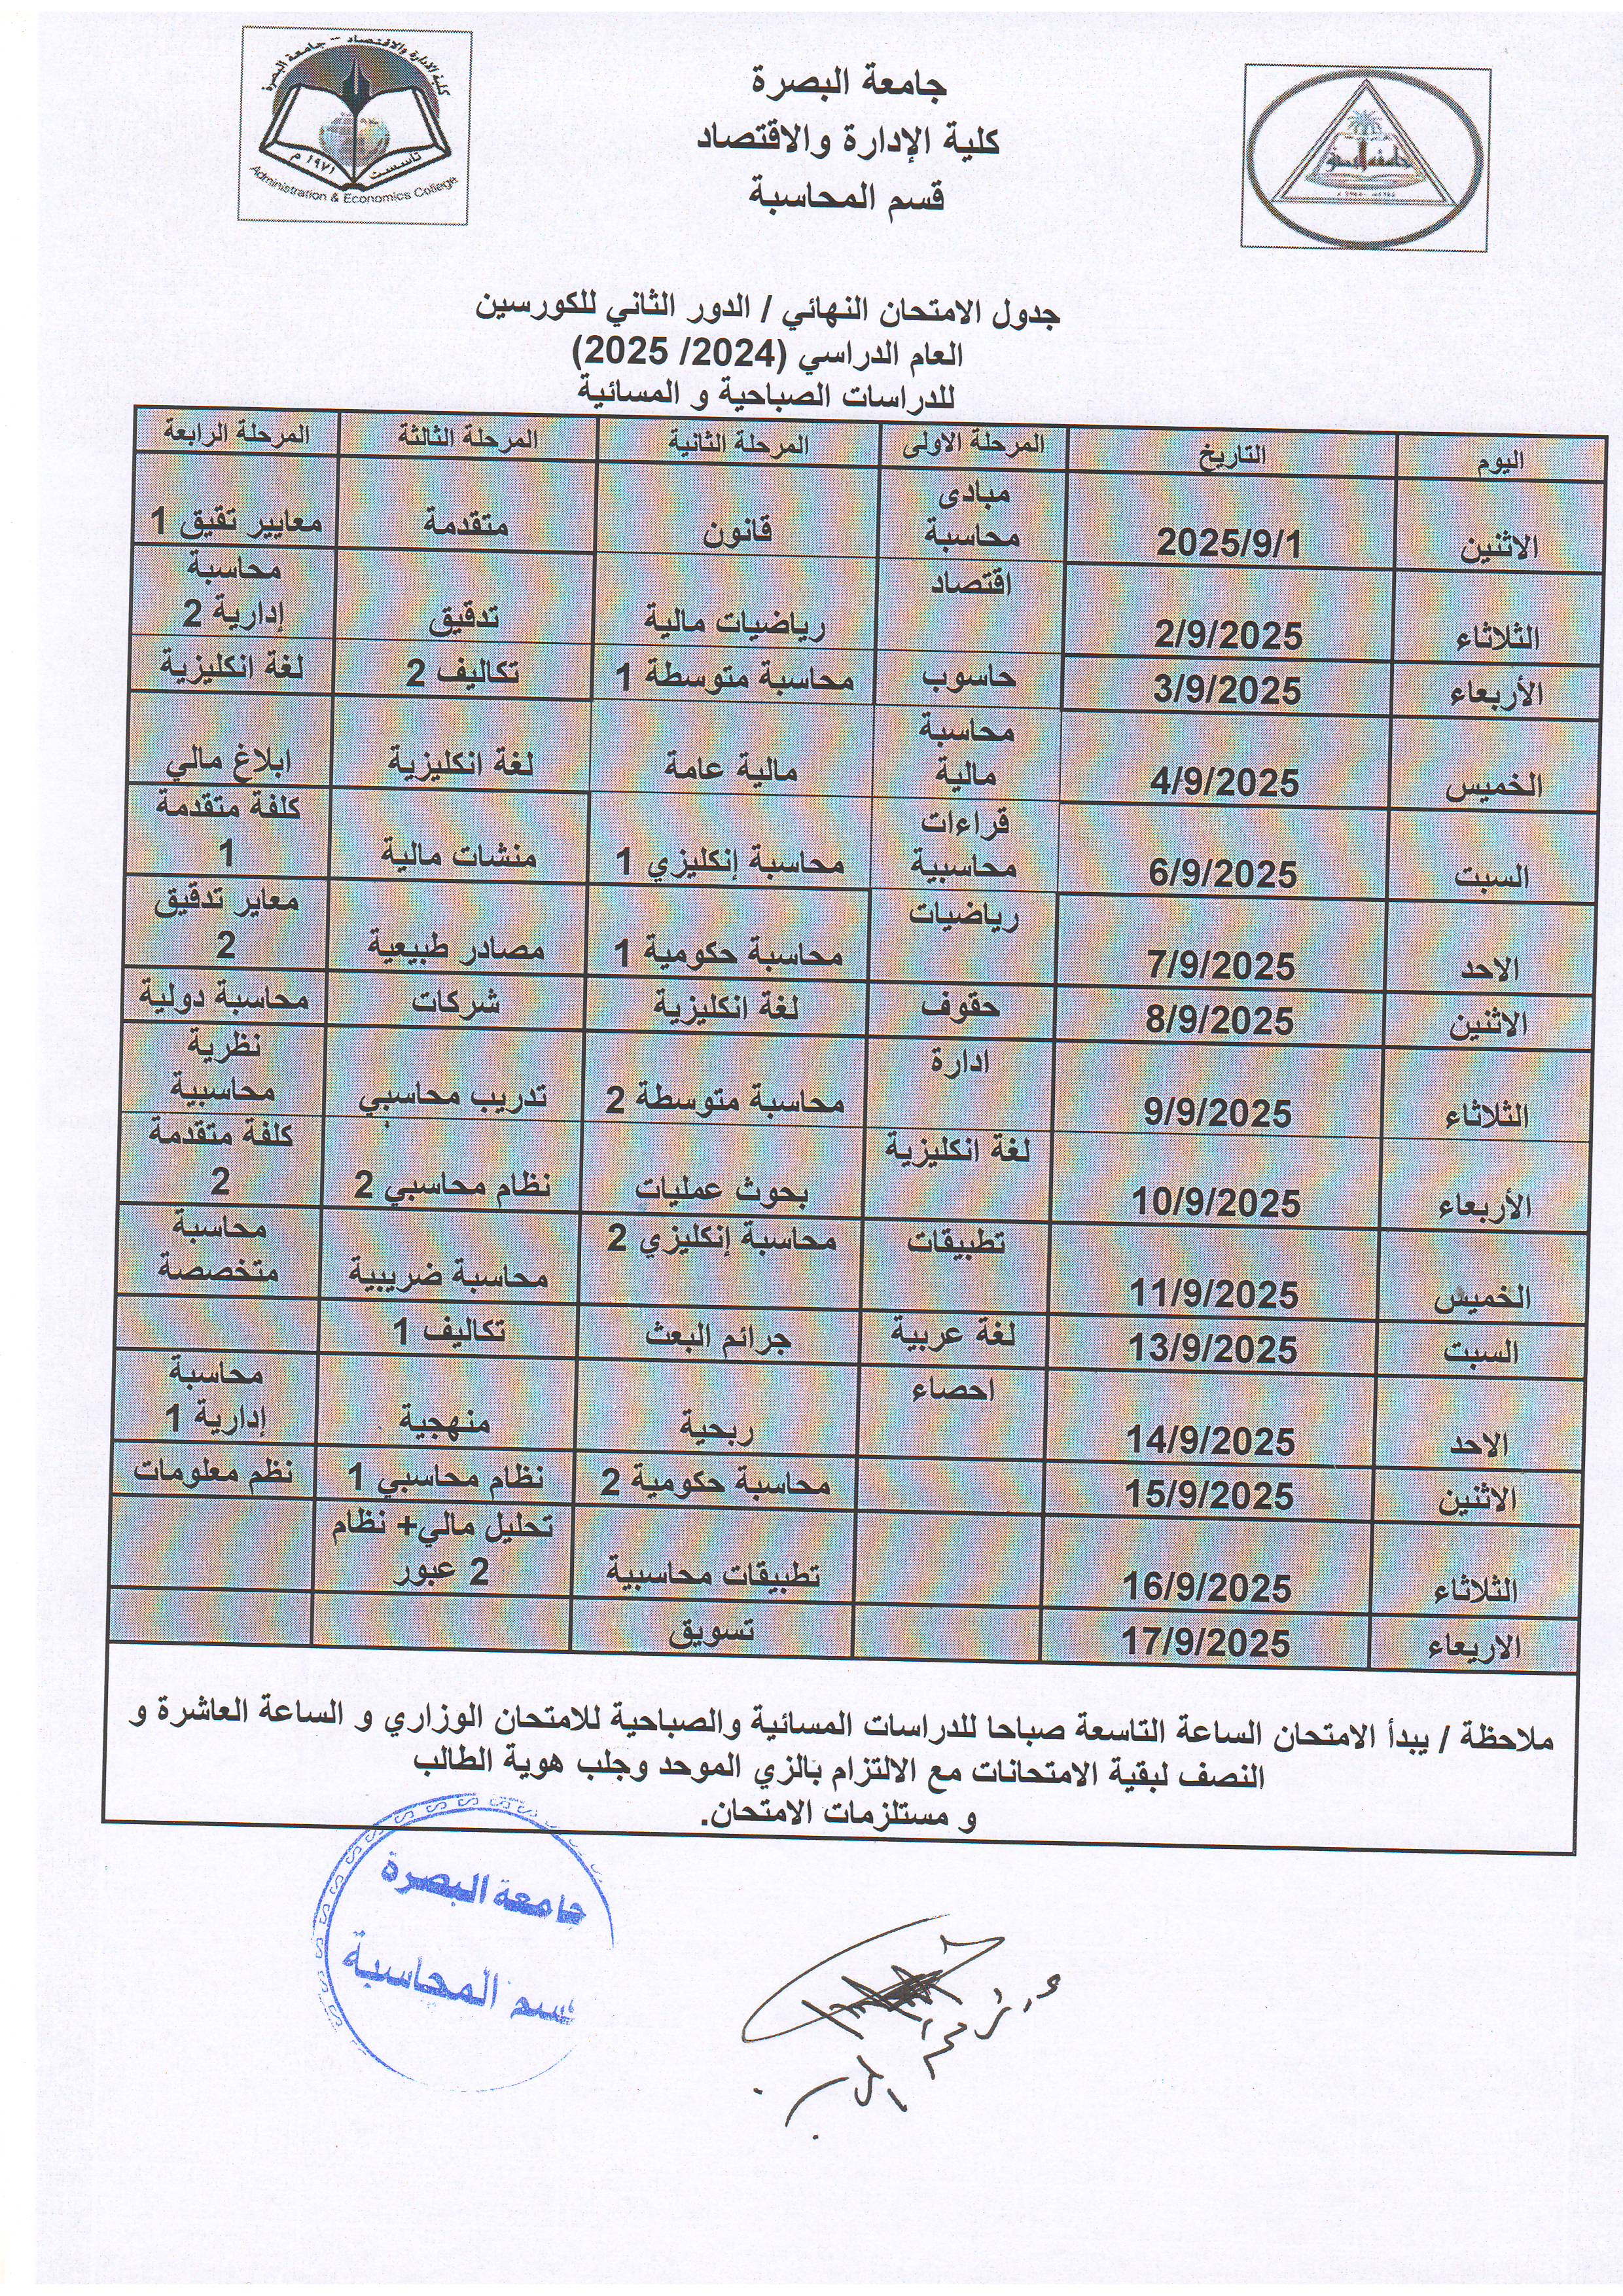 كلية الإدارة والاقتصاد - جامعة البصرة
تأسست ١٩٧١ م
Administration & Economics College
جامعة البصرة
كلية الإدارة والاقتصاد
قسم المحاسبة
جدول الامتحان النهائي / الدور الثاني للكورسين
العام الدراسي (2024/ 2025)
للدراسات الصباحية و المسائية
اليوم التاريخ المرحلة الاولى المرحلة الثانية المرحلة الثالثة المرحلة الرابعة
الاثنين 2025/9/1 مبادى محاسبة قانون متقدمة معايير تقيق 1
الثلاثاء 2/9/2025 اقتصاد رياضيات مالية تدقيق محاسبة إدارية 2
الأربعاء 3/9/2025 حاسوب محاسبة متوسطة 1 تكاليف 2 لغة انكليزية
الخميس 4/9/2025 محاسبة مالية مالية عامة لغة انكليزية ابلاغ مالي
السبت 6/9/2025 قراءات محاسبية محاسبة إنكليزي 1 منشات مالية كلفة متقدمة 1
الاحد 7/9/2025 رياضيات محاسبة حكومية 1 مصادر طبيعية معاير تدقيق 2
الاثنين 8/9/2025 حقوف لغة انكليزية شركات محاسبة دولية
الثلاثاء 9/9/2025 ادارة محاسبة متوسطة 2 تدريب محاسبي نظرية محاسبية
الأربعاء 10/9/2025 لغة انكليزية بحوث عمليات نظام محاسبي 2 كلفة متقدمة 2
الخميس 11/9/2025 تطبيقات محاسبة إنكليزي 2 محاسبة ضريبية محاسبة متخصصة
السبت 13/9/2025 لغة عربية جرائم البعث تكاليف 1
الاحد 14/9/2025 احصاء ربحية منهجية محاسبة إدارية 1
الاثنين 15/9/2025 محاسبة حكومية 2 نظام محاسبي 1 نظم معلومات
الثلاثاء 16/9/2025 تطبيقات محاسبية تحليل مالي+ نظام 2 عبور
الاربعاء 17/9/2025 تسويق
ملاحظة / يبدأ الامتحان الساعة التاسعة صباحا للدراسات المسائية والصباحية للامتحان الوزاري و الساعة العاشرة و
النصف لبقية الامتحانات مع الالتزام بالزي الموحد وجلب هوية الطالب
و مستلزمات الامتحان.
جامعة البصرة
قسم المحاسبة